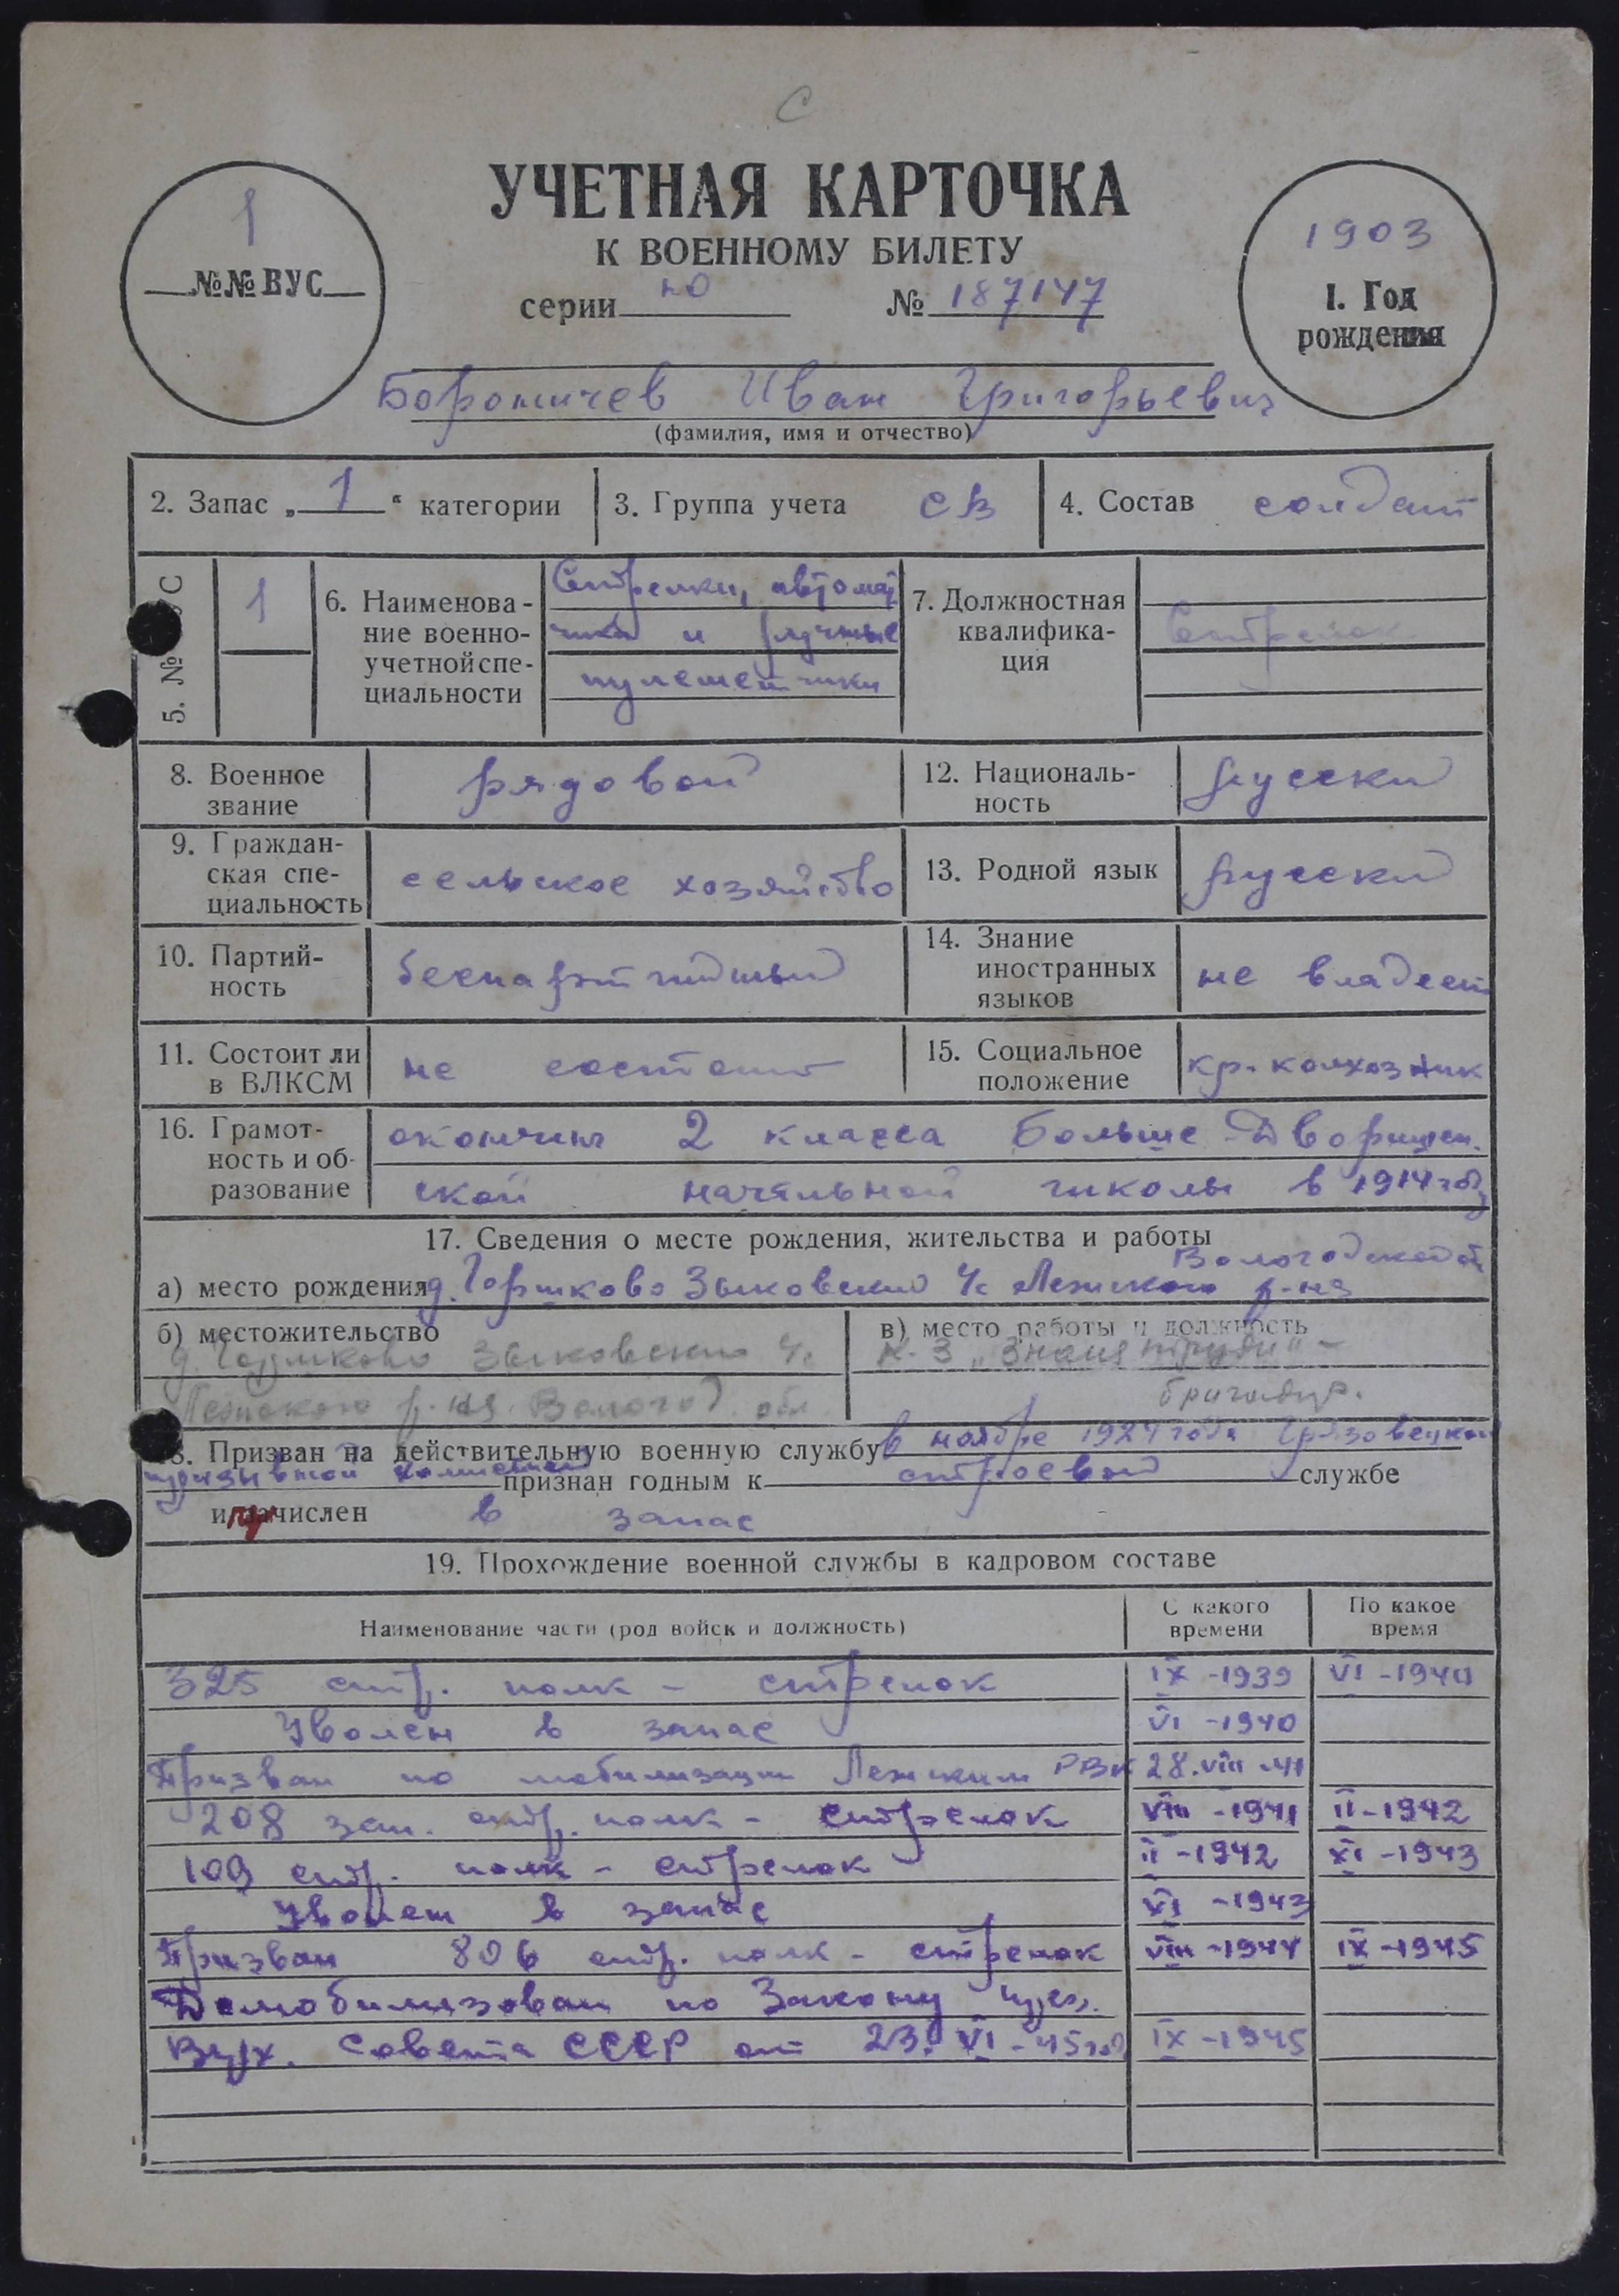 С
УЧЕТНАЯ КАРТОЧКА
К ВОЕННОМУ БИЛЕТУ
серии НО № 187147
1
№№ ВУС
1903
1. Год
рождения
Иван Григорьевич
(фамилия, имя и отчество)
2. Запас „ 1 “ категории
3. Группа учета СВ
4. Состав солдат
5. № С
1
6. Наименова-
ние военно-
учетной спе-
циальности
Стрелки, автомат
чики и ручные
пулеметчики
7. Должностная
квалифика-
ция
Стрелок
8. Военное
звание
рядовой
12. Националь-
ность
русский
9. Граждан-
ская спе-
циальность
сельское хозяйство
13. Родной язык
русский
10. Партий-
ность
беспартийный
14. Знание
иностранных
языков
не владеет
11. Состоит ли
в ВЛКСМ
не состоит
15. Социальное
положение
кр. колхозник
16. Грамот-
ность и об-
разование
окончил 2 класса Больше-Дворищен.
ской начальной школы в 1914 году
17. Сведения о месте рождения, жительства и работы
Вологодской
а) место рождения д. Горшково Зыковский ч/с Лежского р-на
б) местожительство
д. Горшково Зыковского ч/с
Лежского р-на Вологод. обл.
в) место работы и должность
к-з „Знамя труда“ –
бригадир.
18. Призван на действительную военную службу в ноябре 192 года Грязовецкой
призывной комиссией признан годным к строевой службе
и зачислен в запас
19. Прохождение военной службы в кадровом составе
Наименование части (род войск и должность)
С какого
времени
По какое
время
325 стр. полк – стрелок IX -1939 VI -1940
Уволен в запас VI -1940
Призван по мобилизации Лежским РВК 28.VIII-41
208 зап. стр. полк – стрелок VIII -1941 II -1942
109 стр. полк – стрелок II -1942 XI -1943
Уволен в запас XI -1943
Призван 806 стр. полк – стрелок VIII -1944 IX -1945
Демобилизован по Закону През.
Верх. Совета СССР от 23. VI -45 год IX -1945